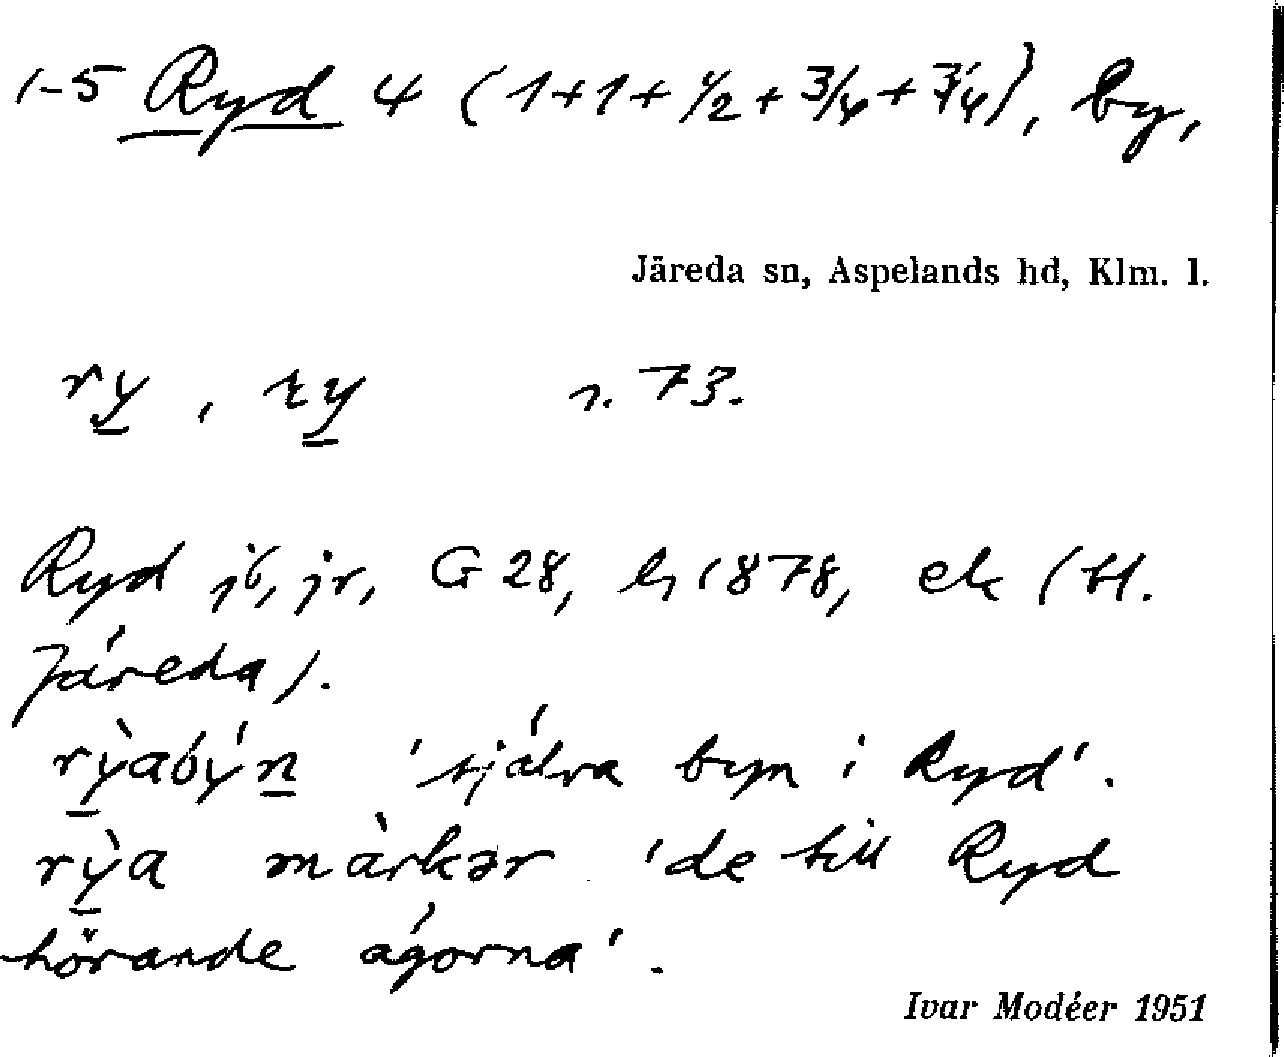 1-5 Ryd 4 (1+1+1/2+3/4+3/4), by,
Järeda sn, Aspelands hd, Klm. l.
ry̲, ɽy̲ s. 73.
Ryd jb, jr, G 28, by 1878, ek (H.
Järeda).
rỳ̲abýn̲ 'själva byn i Ryd'.
rỳ̲a màrkər 'de till Ryd
hörande ägorna'.
Ivar Modéer 1951